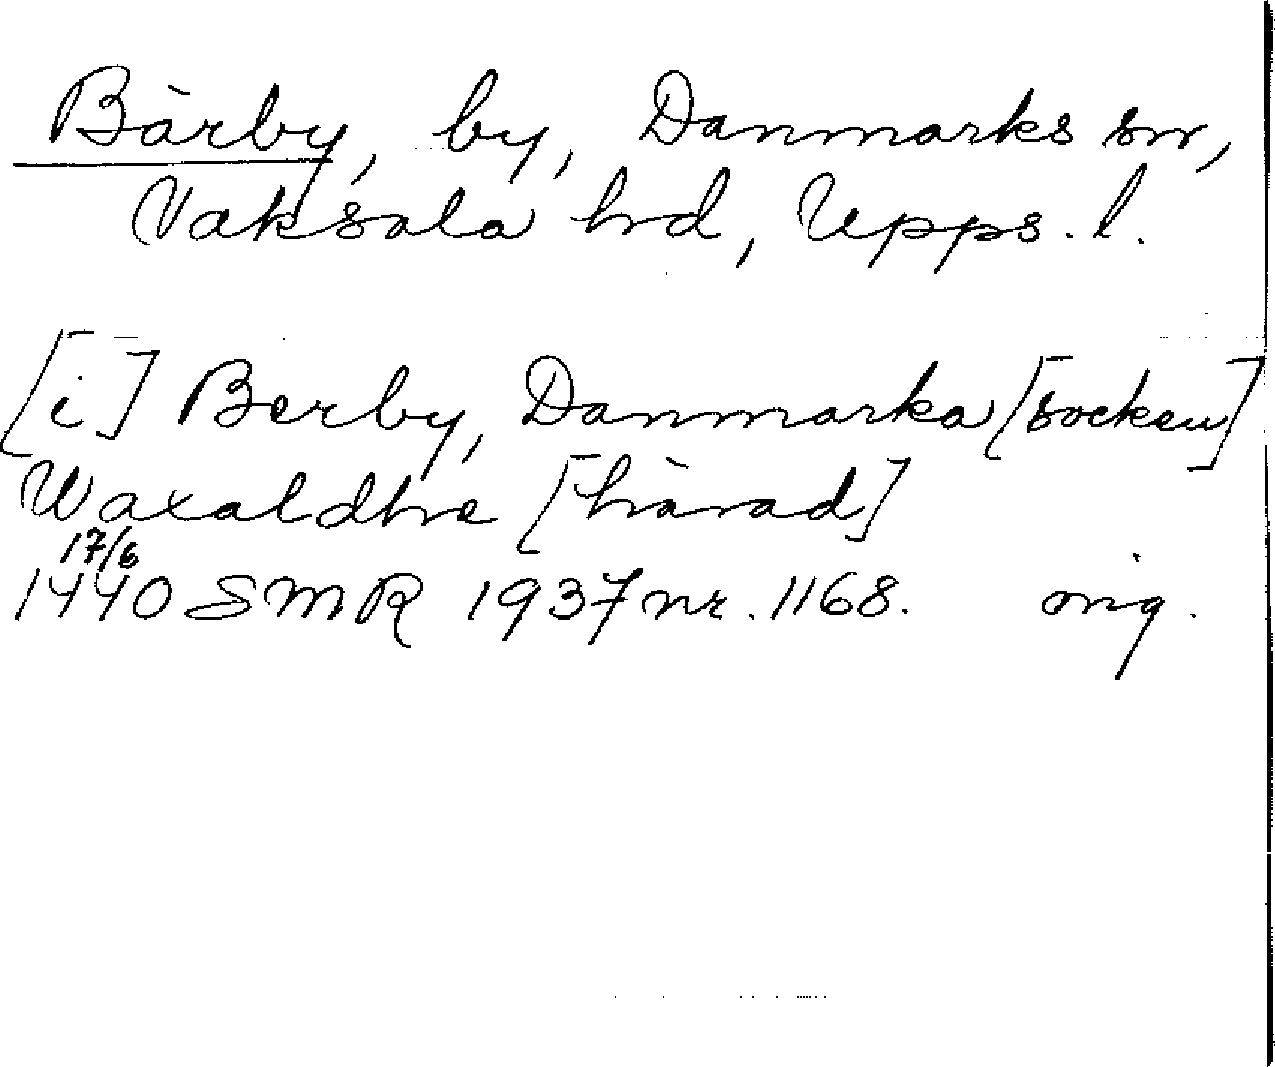 Bärby, by, Danmarks sn,
Vaksala hd, Upps. l.
[i] Berby, Danmarka [socken]
Waxaldhre [härad]
17/6
1440 SMR 1937 nr. 1168. orig.